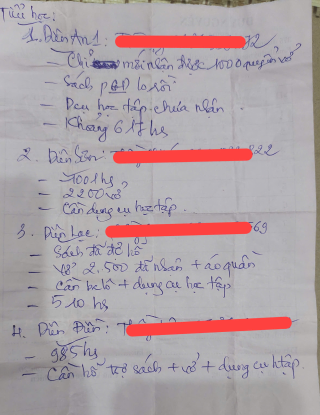 Tiểu học:
1. Diên An 1: 72
- Chỉ mới nhận được 1000 quyển vở
- Sách PGD lo rồi
- Dcụ học tập chưa nhận.
- Khoảng 617 hs
2. Diên Sơn: 222
- 1001 hs
- 2200 vở
- Cần dụng cụ học tập.
3. Diên Lạc: 569
- Sách đã đủ
- Vở 2.500 đã nhận + áo quần
- Cần + dụng cụ học tập
- 510 hs
4. Diên Điền:
- 985 hs
- Cần hỗ trợ sách + vở + dụng cụ htập.